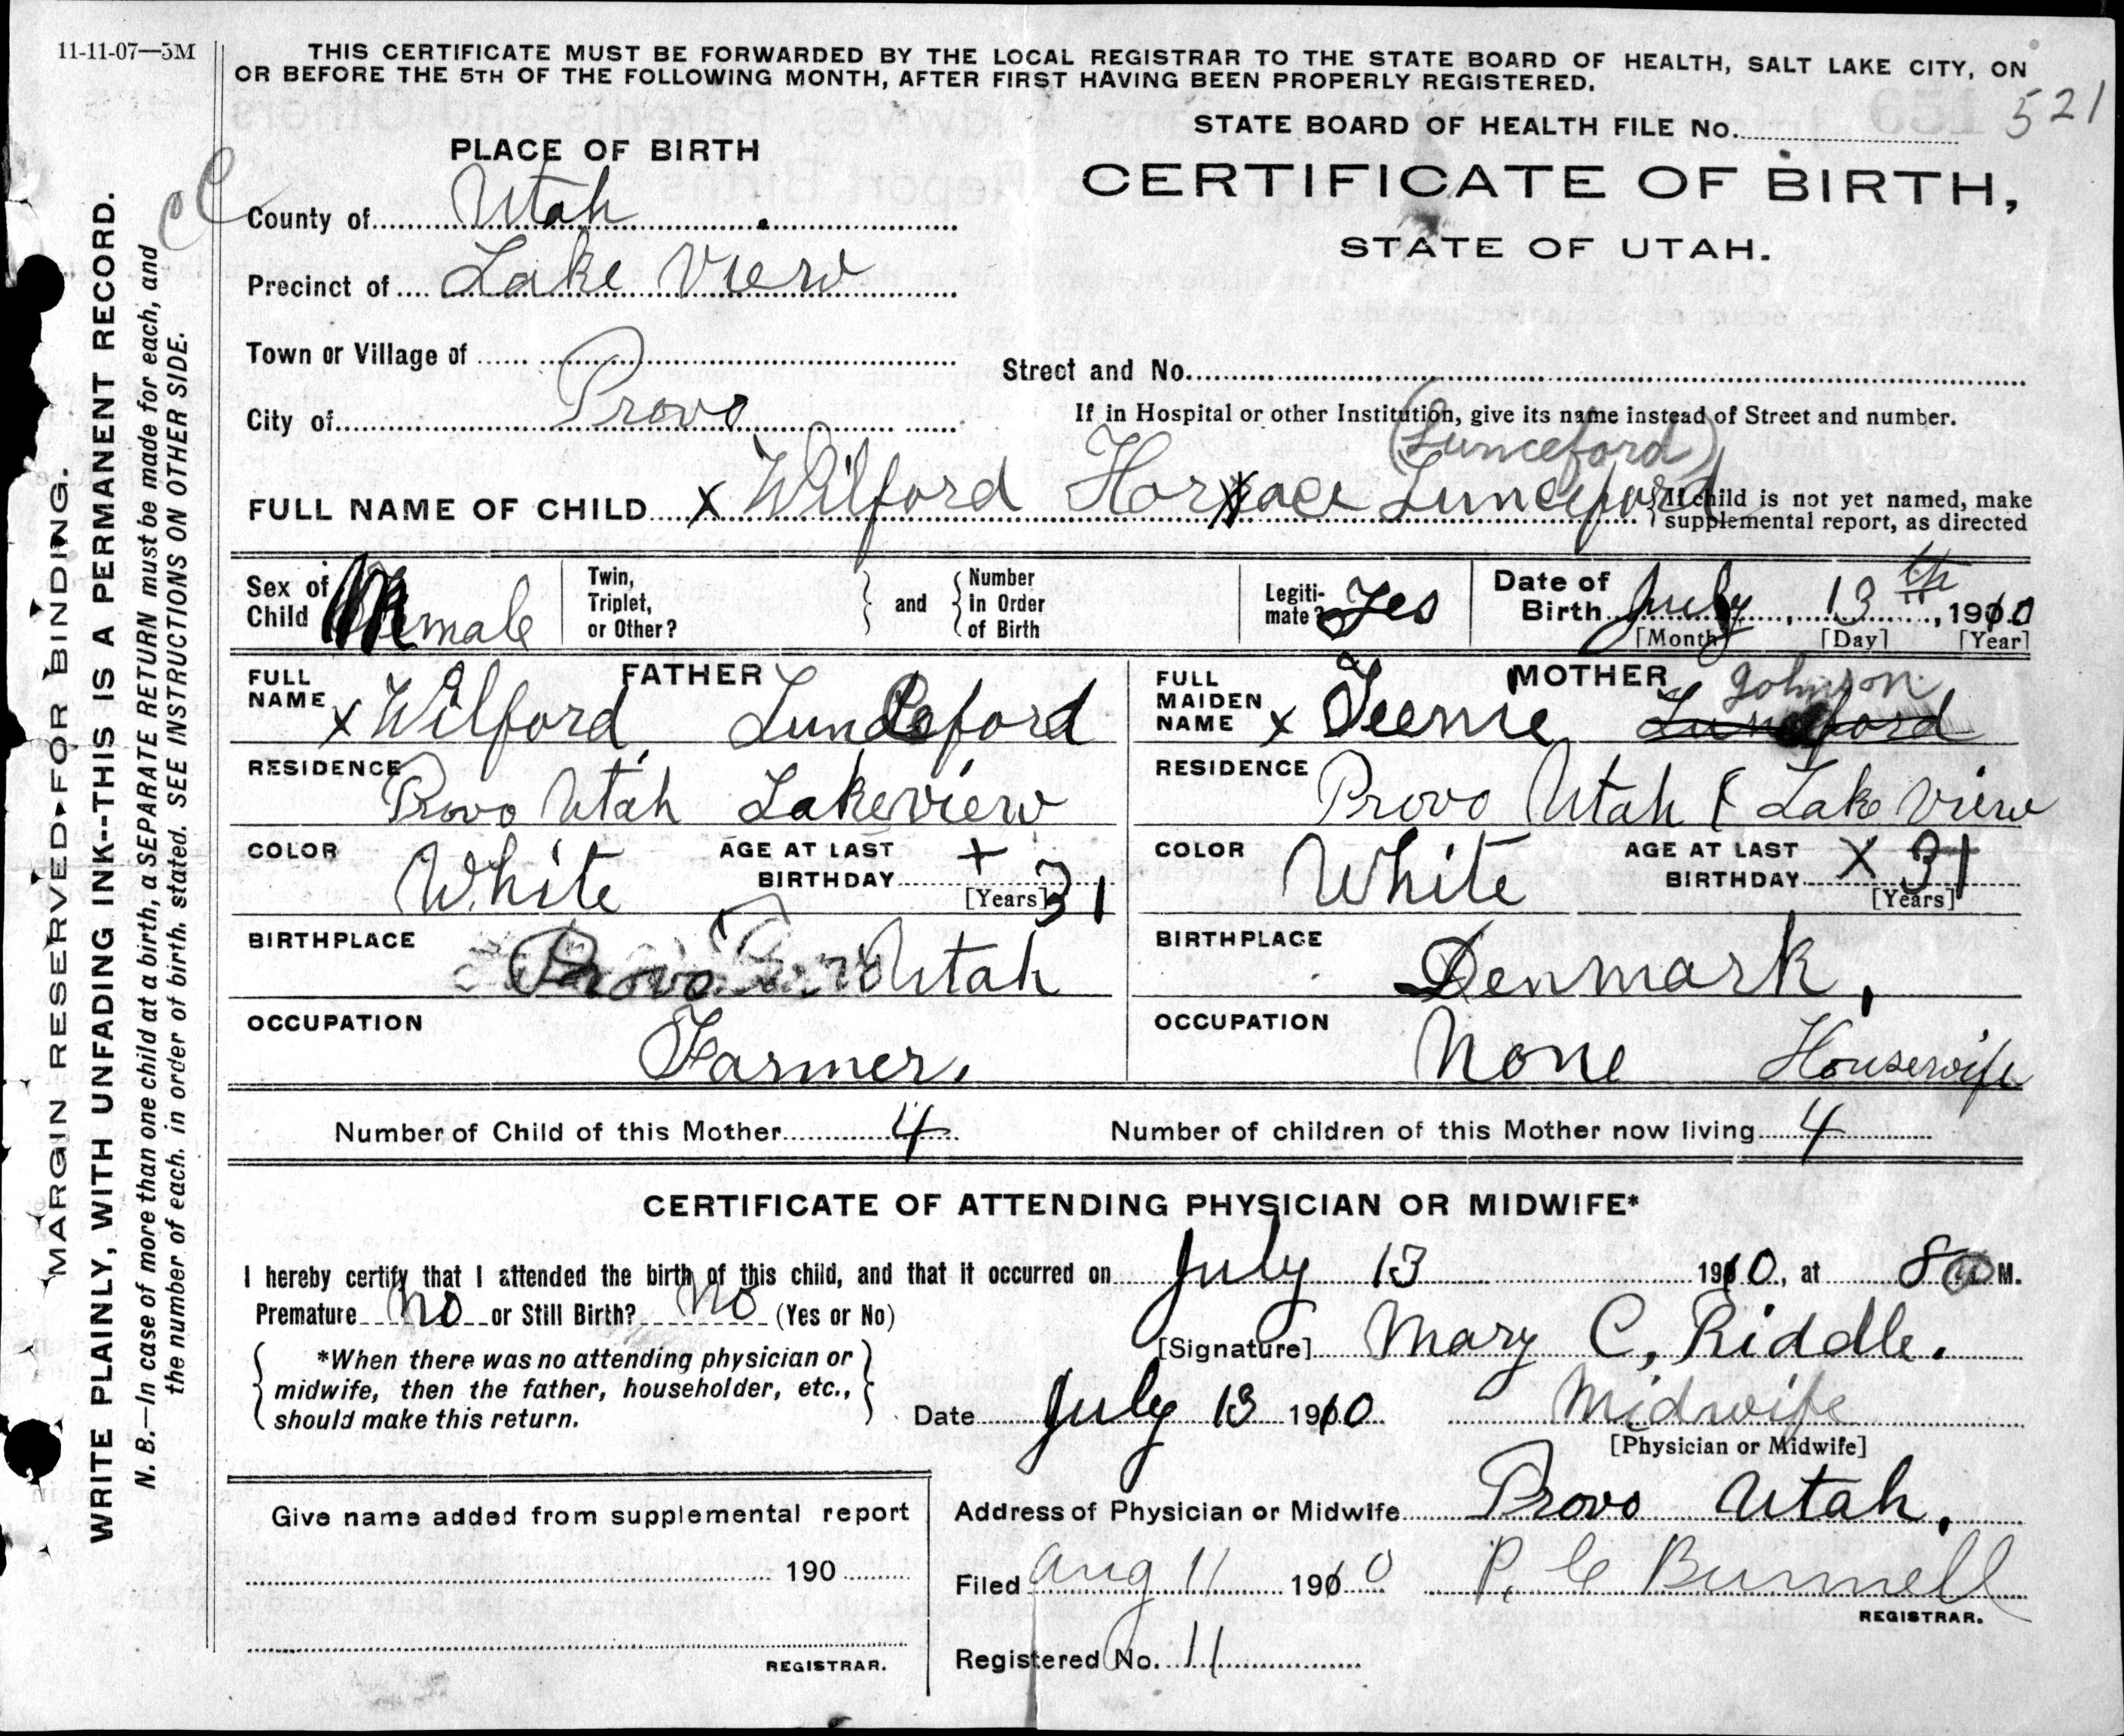 11-11-07—5M
THIS CERTIFICATE MUST BE FORWARDED BY THE LOCAL REGISTRAR TO THE STATE BOARD OF HEALTH, SALT LAKE CITY, ON
OR BEFORE THE 5TH OF THE FOLLOWING MONTH, AFTER FIRST HAVING BEEN PROPERLY REGISTERED.
521
STATE BOARD OF HEALTH FILE No.
CERTIFICATE OF BIRTH,
STATE OF UTAH.
PLACE OF BIRTH
County of Utah
Precinct of Lake View
Town or Village of
Street and No.
City of Provo
If in Hospital or other Institution, give its name instead of Street and number.
(Lunceford)
FULL NAME OF CHILD X Wilford Horace Lunceford
If child is not yet named, make
supplemental report, as directed
Sex of Child male
Twin, Triplet, or Other?
and
Number in Order of Birth
Legiti-mate? Yes
Date of Birth July 13th, 1910
[Month] [Day] [Year]
FATHER
FULL NAME X Wilford Lunceford
RESIDENCE Provo Utah Lakeview
COLOR White
AGE AT LAST BIRTHDAY + 31
[Years]
BIRTHPLACE Provo Utah
OCCUPATION Farmer.
MOTHER
FULL MAIDEN NAME X Teenie Lunceford Johnson
RESIDENCE Provo Utah Lake View
COLOR White
AGE AT LAST BIRTHDAY X 31
[Years]
BIRTHPLACE Denmark,
OCCUPATION None Housewife
Number of Child of this Mother 4
Number of children of this Mother now living 4
CERTIFICATE OF ATTENDING PHYSICIAN OR MIDWIFE*
I hereby certify that I attended the birth of this child, and that it occurred on July 13 1910, at 8 a M.
Premature No or Still Birth? No (Yes or No)
*When there was no attending physician or
midwife, then the father, householder, etc.,
should make this return.
[Signature] Mary C, Riddle.
Date July 13 1910 Midwife
[Physician or Midwife]
Address of Physician or Midwife Provo Utah.
Filed Aug 11 1910 P. C Bunnell
REGISTRAR.
Registered No. 11
Give name added from supplemental report
190
REGISTRAR.
MARGIN RESERVED FOR BINDING.
WRITE PLAINLY, WITH UNFADING INK--THIS IS A PERMANENT RECORD.
N. B.—In case of more than one child at a birth, a SEPARATE RETURN must be made for each, and
the number of each. in order of birth. stated. SEE INSTRUCTIONS ON OTHER SIDE.